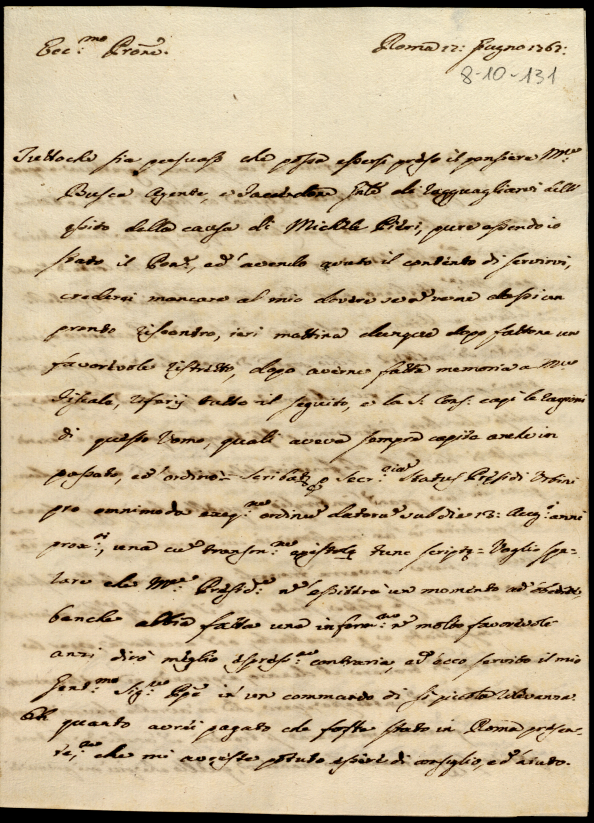 Ecc.mo Prone.
Roma 12: Giugno 1767:
8-10-131
Tuttoche sia persuaso che possa essersi preso il pensiere Mr.
Busca Agente, e Sacerdone di ragguagliarvi dell'
esito della causa di Michele Pieri, pure essendo io
stato il Pon.e, ed' avendo avuto il contento di servirvi,
crederei mancare al mio dovere se non ve ne dassi un
pronto riscontro, ieri mattina dunque dopo fattone un
favorevole ristretto, dopo averne fatta memoria a Mre
Fiscale, riferij tutto il seguito, e la S. Cons. capì le ragioni
di questo Uomo, quali aveva sempre capite anche in
passato, ed' ordinò = Scribat. Secr.ria Status Presidi Urbini
pro omnimoda exeq.ne ordinum datorum sub die 13: Aug.i anni
prox.i, una cum transm.ne epistolę tunc scriptę = Voglio spe-
rare che Mre Presid.e n' esitterà un momento ad' obedire,
benche abbia fatta una inform.ne nò molto favorevole
anzi dirò meglio espress.te contraria, ed' ecco servito il mio
Gent.mo Sig.re Ppe in un commando di sì piccola rilevanza.
Oh quanto avrei pagato che foste stato in Roma presen-
te, che mi avreste potuto essere di consiglio, ed' aiuto.